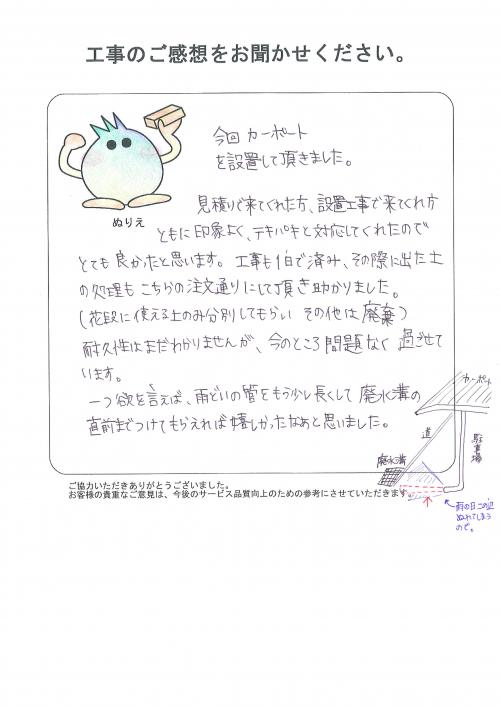 工事のご感想をお聞かせください。
ぬりえ
今回 カーポート
を設置して頂きました。
見積りで来てくれた方、設置工事で来てくれ方
ともに印象よく、テキパキと対応してくれたので
とても良かったと思います。工事も1日で済み、その際に出た土
の処理もこちらの注文通りにして頂き助かりました。
(花段に使える土のみ分別してもらい その他は廃棄)
耐久性はまだわかりませんが、今のところ問題なく過ごせて
います。
一つ欲を言えば、雨どいの管をもう少し長くして廃水溝の
直前までつけてもらえれば嬉しかったなぁと思いました。
カーポート
道
駐車場
廃水溝
雨の日この辺
ぬれてしまう
ので。
ご協力いただきありがとうございました。
お客様の貴重なご意見は、今後のサービス品質向上のための参考にさせていただきます。